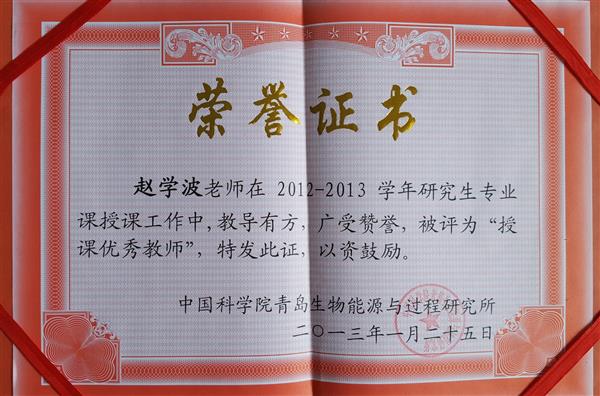 荣誉证书
赵学波老师在 2012-2013 学年研究生专业
课授课工作中,教导有方，广受赞誉，被评为“授
课优秀教师”，特发此证，以资鼓励。
中国科学院青岛生物能源与过程研究所
二〇一三年一月二十五日